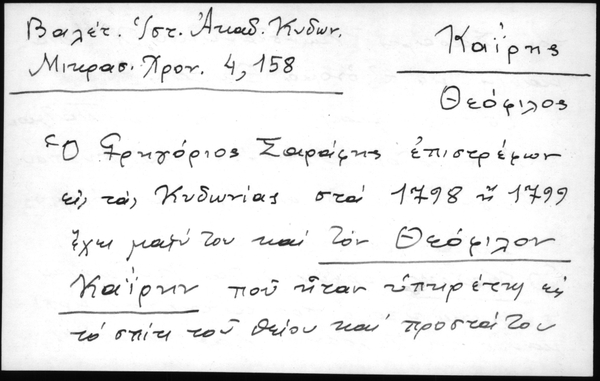 Βαλέτ. Ἱστ. Ἀκαδ. Κυδων.
Μικρασ. Χρον. 4, 158
Καΐρης
Θεόφιλος
Ὁ Γρηγόριος Σαράφης ἐπιστρέφων
εἰς τὰς Κυδωνίας στά 1798 ἤ 1799
ἔχει μαζύ του καί τόν Θεόφιλον
Καΐρην ποῦ ἦταν ὑπηρέτης εἰς
τό σπίτι τοῦ θείου καί προστάτου